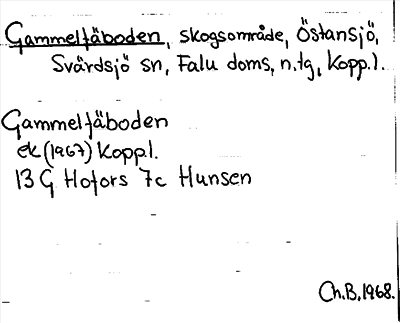 Gammelfäboden, skogsområde, Östansjö,
Svärdsjö sn, Falu doms, n.tg, Kopp.l.
Gammelfäboden
ek (1967) Kopp.l.
13 G Hofors 7c Hunsen
Ch.B. 1968.